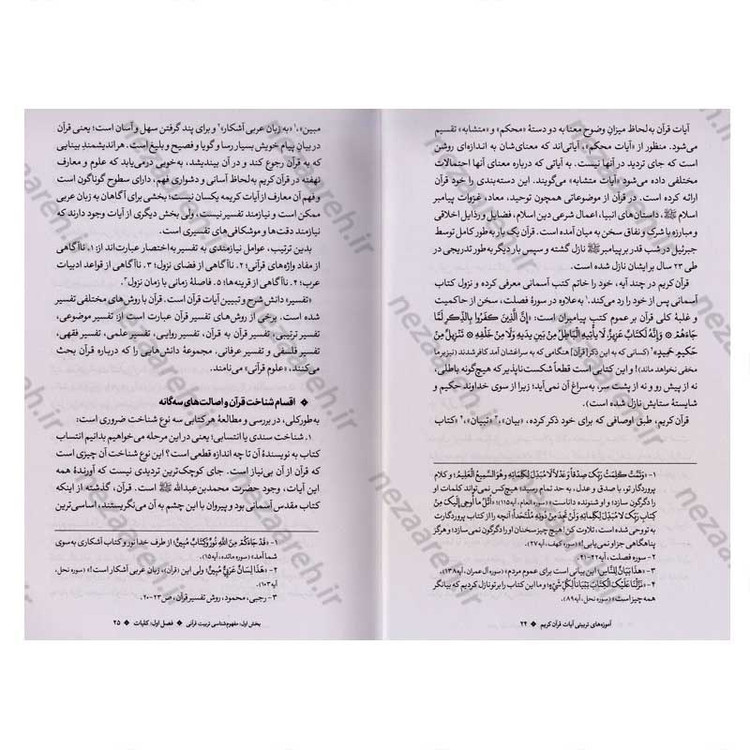 آیات قرآن به‌لحاظ میزان وضوح معنا به دو دستهٔ «محکم» و «متشابه» تقسیم
می‌شود. منظور از «آیات محکم»، آیاتی‌اند که معنای‌شان به‌اندازه‌ای روشن
است که جای تردید در آنها نیست. به آیاتی که درباره معنای آنها احتمالات
مختلفی داده می‌شود «آیات متشابه» می‌گویند. این دسته‌بندی را خود قرآن
ارائه کرده است. در قرآن از موضوعاتی همچون توحید، معاد، غزوات پیامبر
اسلام ﷺ، داستان‌های انبیا، اعمال شرعی دین اسلام، فضایل و رذایل اخلاقی
و مبارزه با شرک و نفاق سخن به میان آمده است. قرآن یک بار به‌طور کامل توسط
جبرئیل در شب قدر بر پیامبر ﷺ نازل گشته و سپس بار دیگر به‌طور تدریجی در
طی ۲۳ سال بر ایشان نازل شده است.
قرآن کریم در چند آیه، خود را خاتم کتب آسمانی معرفی کرده و نزول کتاب
آسمانی پس از خود را رد می‌کند.¹ به‌علاوه در سورهٔ فصلت، سخن از حاکمیت
و غلبهٔ کلی قرآن بر عموم کتب پیامبران است: «إِنَّ الَّذِينَ كَفَرُوا بِالذِّكْرِ لَمَّا
جَاءَهُمْ وَإِنَّهُ لَكِتَابٌ عَزِيزٌ لَا يَأْتِيهِ الْبَاطِلُ مِنْ بَيْنِ يَدَيْهِ وَلَا مِنْ خَلْفِهِ تَنْزِيلٌ مِنْ
حَكِيمٍ حَمِيدٍ»² (کسانی که به این ذکر [قرآن] هنگامی که به سراغشان آمد کافر شدند (نیز بر ما
مخفی نخواهند ماند)! و این کتابی است قطعاً شکست‌ناپذیر که هیچ‌گونه باطلی،
نه از پیش رو و نه از پشت سر، به سراغ آن نمی‌آید؛ زیرا از سوی خداوند حکیم و
شایستهٔ ستایش نازل شده است).
قرآن کریم، طبق اوصافی که برای خود ذکر کرده، «بیان»،³ «تبیان»،⁴ «کتاب
۱- «وَتَمَّتْ كَلِمَتُ رَبِّكَ صِدْقًا وَعَدْلًا لَا مُبَدِّلَ لِكَلِمَاتِهِ وَهُوَ السَّمِيعُ الْعَلِيمُ؛ و کلام
پروردگار تو، با صدق و عدل، به حد تمام رسید؛ هیچ‌کس نمی‌تواند کلمات او
را دگرگون سازد؛ و او شنونده داناست» (سوره انعام، آیه۱۱۵)؛ «اتْلُ مَا أُوحِيَ إِلَيْكَ مِنْ
كِتَابِ رَبِّكَ لَا مُبَدِّلَ لِكَلِمَاتِهِ وَلَنْ تَجِدَ مِنْ دُونِهِ مُلْتَحَدًا؛ آنچه را از کتاب پروردگارت
به تو وحی شده است، تلاوت کن! هیچ چیز سخنان او را دگرگون نمی‌سازد؛ و هرگز
پناهگاهی جز او نمی‌یابی!» (سوره کهف، آیه۲۷).
۲- سوره فصلت، آیه۴۱-۴۲.
۳- «هَذَا بَيَانٌ لِلنَّاسِ؛ این بیانی است برای عموم مردم» (سوره آل عمران، آیه۱۳۸).
۴- «نَزَّلْنَا عَلَيْكَ الْكِتَابَ تِبْيَانًا لِكُلِّ شَيْءٍ؛ و ما این کتاب را بر تو نازل کردیم که بیانگر
همه چیز است» (سوره نحل، آیه۸۹).
آموزه‌های تربیتی آیات قرآن کریم ❖ ۲۴
مبین»،¹ «به زبان عربی آشکار»² و برای پند گرفتن سهل و آسان است؛ یعنی قرآن
در بیان پیام خویش بسیار رسا و گویا و فصیح و بلیغ است. هر اندیشمند بینایی
که به قرآن رجوع کند و در آن بیندیشد، به‌خوبی درمی‌یابد که علوم و معارف
نهفته در قرآن کریم به‌لحاظ آسانی و دشواری فهم، دارای سطوح گوناگون است
و فهم آن معارف از آیات کریمه یکسان نیست؛ بخشی برای آگاهان به زبان عربی
ممکن است و نیازمند تفسیر نیست، ولی بخش دیگری از آیات وجود دارند که
نیازمند دقت‌ها و موشکافی‌های تفسیری است.
بدین ترتیب، عوامل نیازمندی به تفسیر به‌اختصار عبارت‌اند از: ۱. ناآگاهی
از مفاد واژه‌های قرآنی؛ ۲. ناآگاهی از فضای نزول؛ ۳. ناآگاهی از قواعد ادبیات
عرب؛ ۴. ناآگاهی از قرینه‌ها؛ ۵. فاصلهٔ زمانی با زمان نزول.³
«تفسیر» دانش شرح و تبیین آیات قرآن است. قرآن با روش‌های مختلفی تفسیر
شده است. برخی از روش‌های تفسیر قرآن عبارت است از: تفسیر موضوعی،
تفسیر ترتیبی، تفسیر قرآن به قرآن، تفسیر روایی، تفسیر علمی، تفسیر فقهی،
تفسیر فلسفی و تفسیر عرفانی. مجموعهٔ دانش‌هایی را که درباره قرآن بحث
می‌کنند، «علوم قرآنی» می‌نامند.
❖ اقسام شناخت قرآن و اصالت‌های سه‌گانه
به‌طورکلی، در بررسی و مطالعهٔ هر کتابی سه نوع شناخت ضروری است:
۱. شناخت سندی یا انتسابی؛ یعنی در این مرحله می‌خواهیم بدانیم انتساب
کتاب به نویسندهٔ آن تا چه اندازه قطعی است؟ این نوع شناخت آن چیزی است
که قرآن از آن بی‌نیاز است. جای کوچک‌ترین تردیدی نیست که آورندهٔ همه
این آیات، وجود حضرت محمدبن‌عبدالله ﷺ است. قرآن، گذشته از اینکه
کتاب مقدس آسمانی بود و پیروان با این چشم به آن می‌نگریستند، اساسی‌ترین
۱- «قَدْ جَاءَكُمْ مِنَ اللَّهِ نُورٌ وَكِتَابٌ مُبِينٌ؛ از طرف خدا نور و کتاب آشکاری به‌سوی
شما آمد» (سوره مائده، آیه۱۵).
۲- «هَذَا لِسَانٌ عَرَبِيٌّ مُبِينٌ؛ ولی این (قرآن)، زبان عربی آشکار است!» (سوره نحل،
آیه۱۰۳).
۳- رجبی، محمود، روش تفسیر قرآن، ص۲۳-۲۰.
بخش اول: مفهوم‌شناسی تربیت قرآنی ❖ فصل اول: کلیات ❖ ۲۵
nezaareh.ir